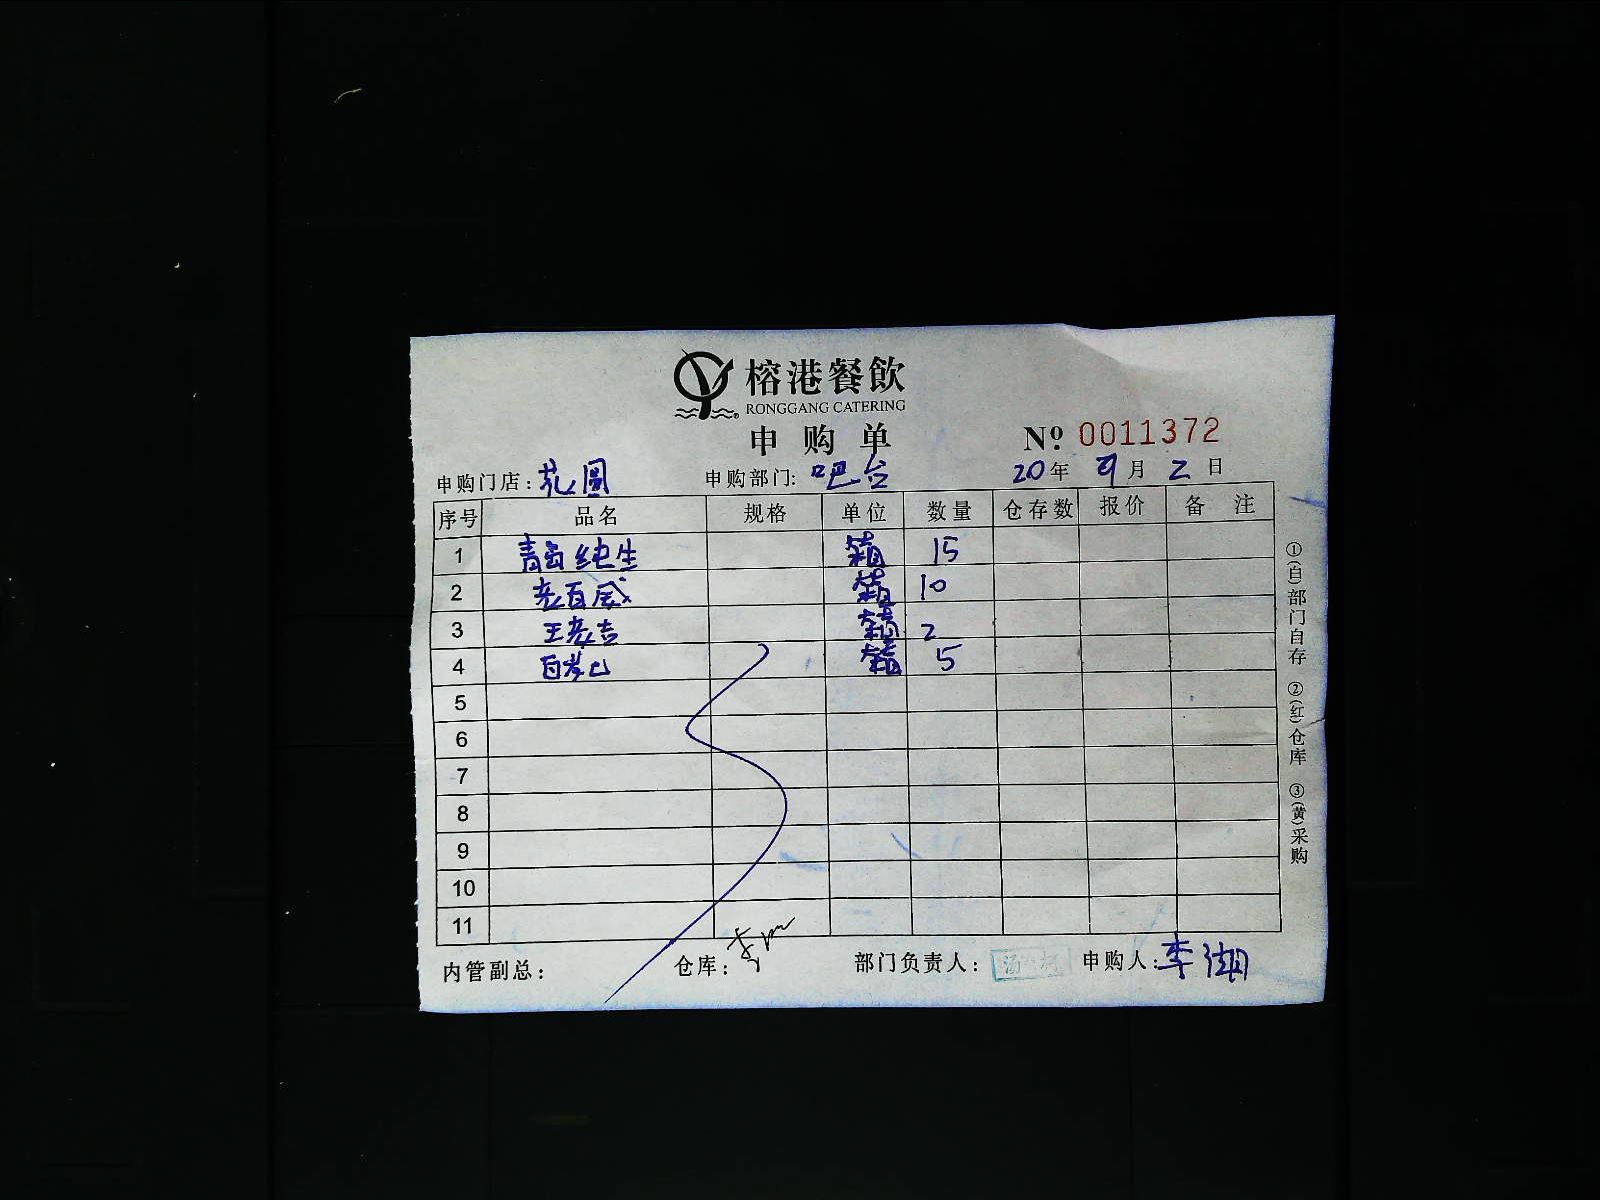 榕港餐飲
RONGGANG CATERING
申购单 Nº 0011372
申购门店: 花圃 申购部门: 吧台 20年 9月 2日
序号 品名 规格 单位 数量 仓存数 报价 备注
1 青岛纯生 箱 15
2 老百威 箱 10
3 王老吉 箱 2
4 百岁山 箱 5
5
6
7
8
9
10
11
内管副总: 仓库: 部门负责人: 申购人: 李湖
①(白)部门自存 ②(红)仓库 ③(黄)采购